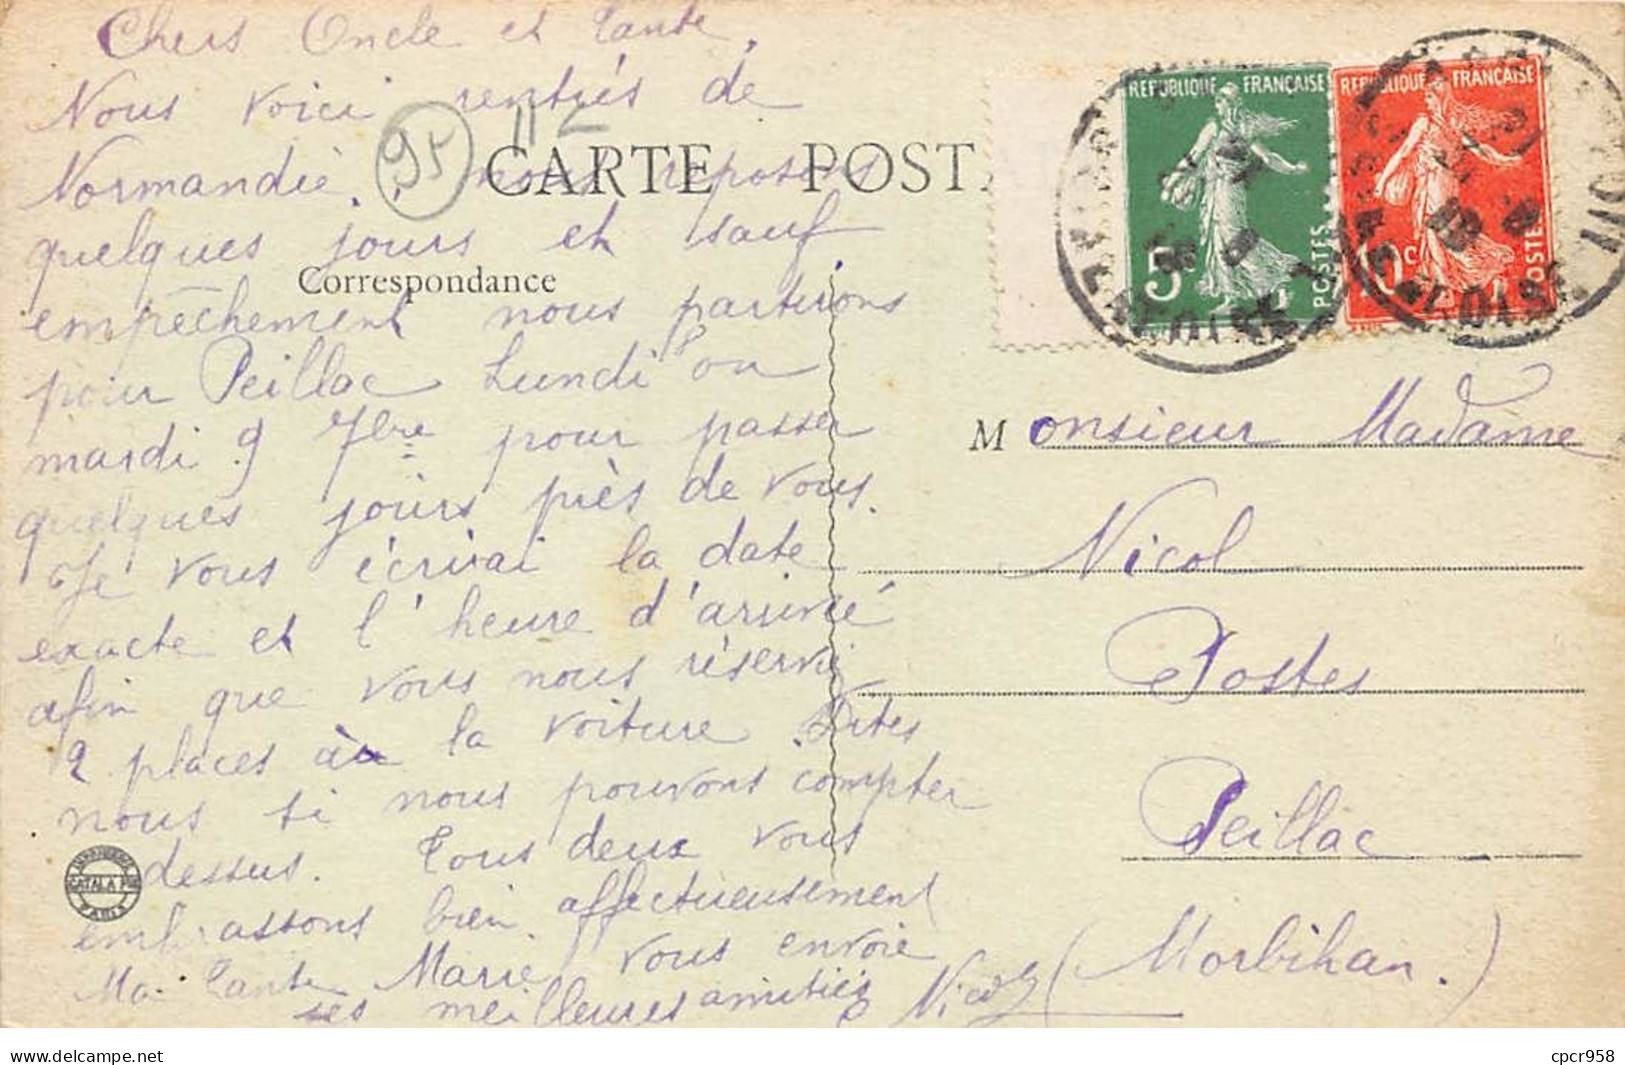 Chers Oncle et Tante,
Nous voici rentrés de
Normandie. nous reposons
quelques jours et sauf
empêchement nous partirons
pour Peillac Lundi 8 ou
mardi 9 7bre pour passer
quelques jours près de vous.
Je vous écrirai la date
exacte et l'heure d'arrivée
afin que vous nous réserviez
2 places à la voiture. Dites
nous si nous pouvons compter
dessus. Tous deux vous
embrassons bien affectueusement
Ma Tante Marie vous envoie
ses meilleures amitiés
Nicol
95
CARTE POST
Correspondance
REPUBLIQUE FRANÇAISE
5c
POSTES
REPUBLIQUE FRANÇAISE
10c
POSTES
Monsieur Madame
Nicol
Postes
Peillac
(Morbihan.)
IMPRIMERIE
CATALA
PARIS
https://www.delcampe.net
cpcr958